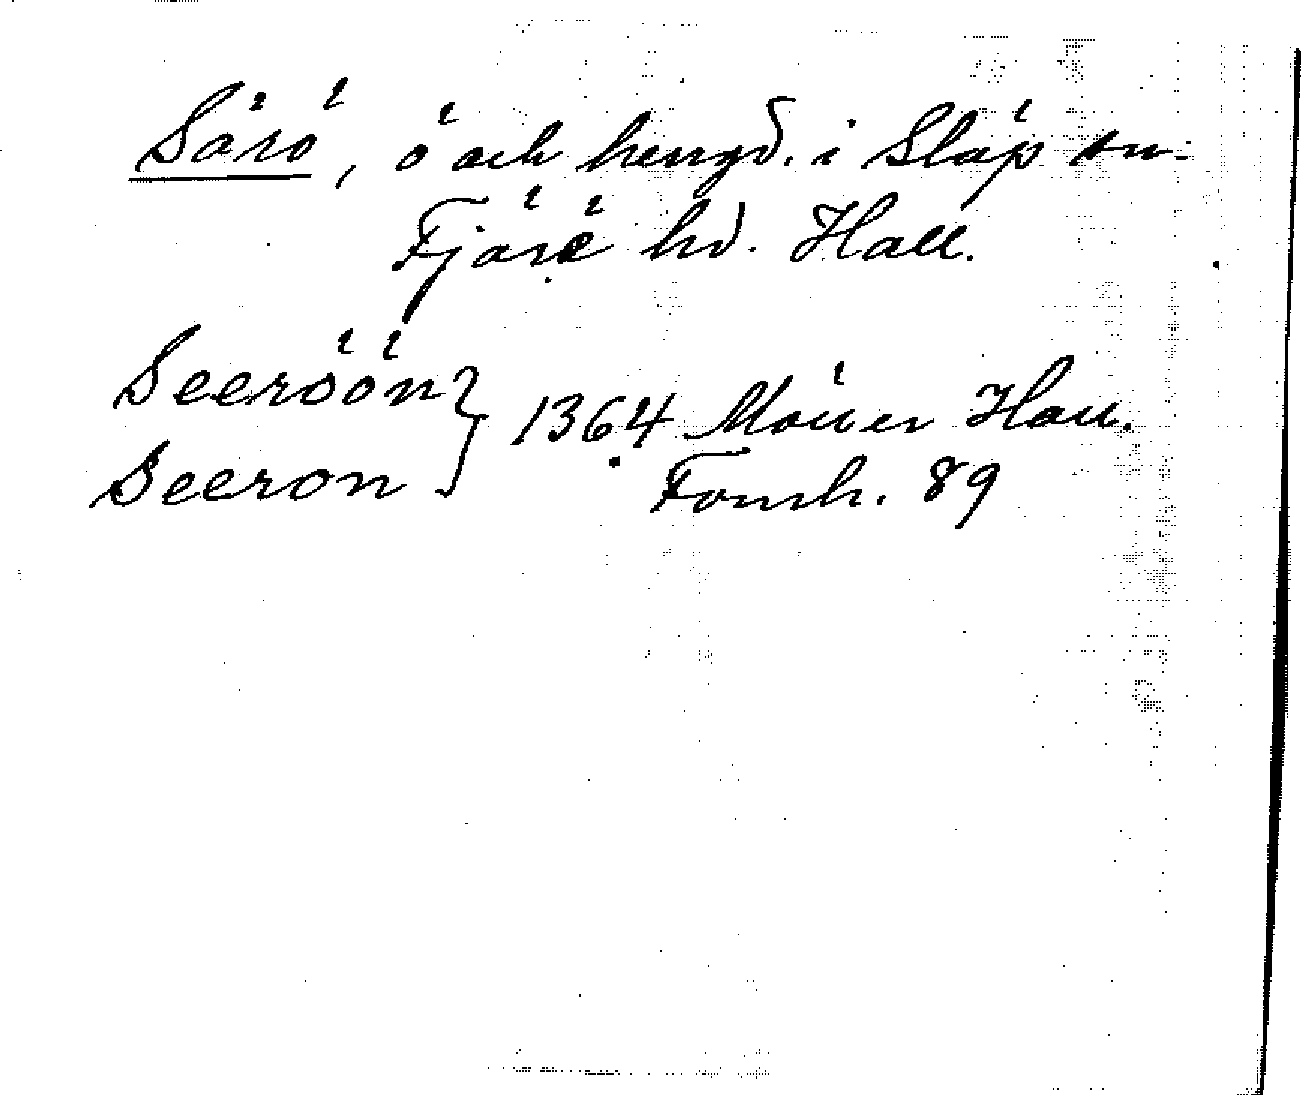 Särö, ö och herrgd. i Släp sn.
Fjäre hd. Hall.
Seeröön } 1364 Möller Hall.
Seeron } Fornh. 89